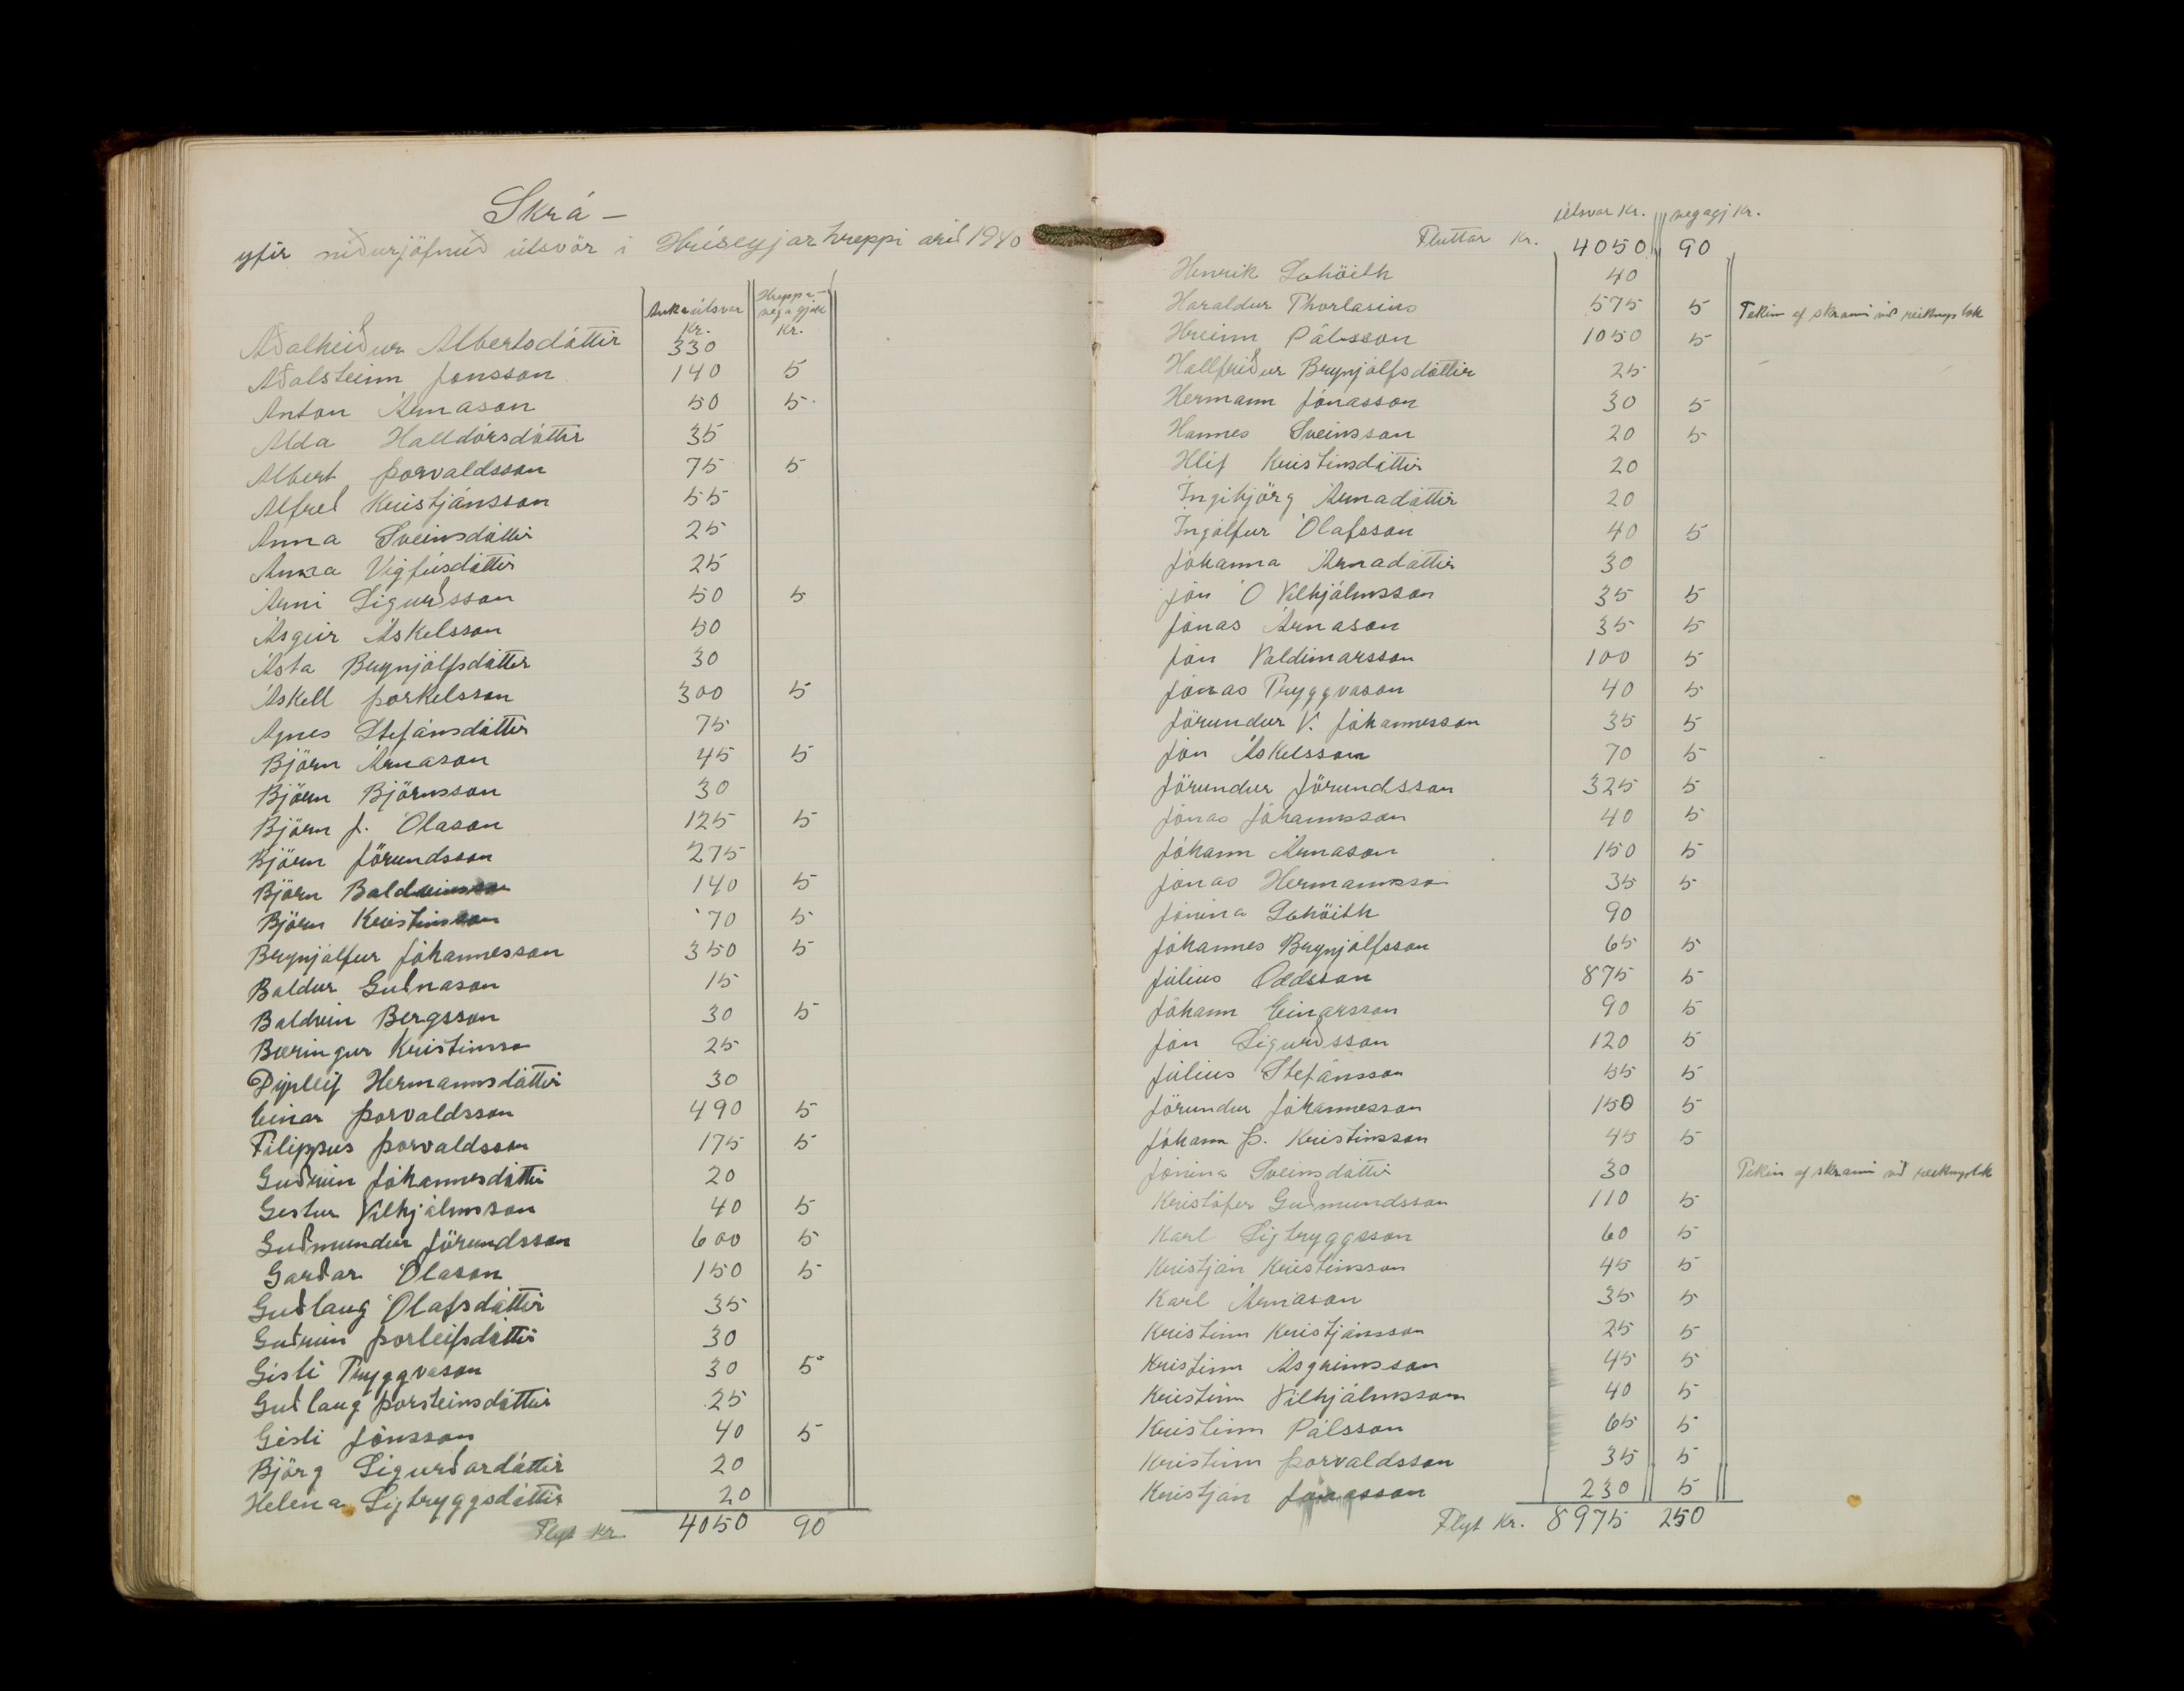 Skrá –
yfir niðurjöfnuð útsvör í Hríseyjarhreppi árið 1940
Aukaútsvar Kr. Hreppa-vegagjald Kr.
Aðalheiður Albertsdóttir 330
Aðalsteinn Jónsson 140 5
Anton Árnason 50 5
Alda Halldórsdóttir 35
Albert Þorvaldsson 75 5
Alfreð Kristjánsson 55
Anna Sveinsdóttir 25
Anna Vigfúsdóttir 25
Árni Sigurðsson 50 5
Ásgeir Áskelsson 50
Ásta Brynjólfsdóttir 30
Áskell Þorkelsson 300 5
Agnes Stefánsdóttir 75
Björn Árnason 45 5
Björn Björnsson 30
Björn J. Ólason 125 5
Björn Jörundsson 275
Björn Baldvinsson 140 5
Björn Kristinsson 70 5
Brynjólfur Jóhannesson 350 5
Baldur Guðnason 15
Baldvin Bergsson 30 5
Bæringur Kristinsso 25
Dýrleif Hermannsdóttir 30
Einar Þorvaldsson 490 5
Filippus Þorvaldsson 175 5
Guðrún Jóhannesdóttir 20
Gestur Vilhjálmsson 40 5
Guðmundur Jörundsson 600 5
Garðar Ólason 150 5
Guðlaug Ólafsdóttir 35
Guðrún Þorleifsdóttir 30
Gísli Tryggvason 30 5
Guðlaug Þorsteinsdóttir 25
Gísli Jónsson 40 5
Björg Sigurðardóttir 20
Helena Sigtryggsdóttir 20
Flyt kr 4050 90
Útsvar Kr. vegagj Kr.
Fluttar Kr. 4050 90
Henrik Schöith 40
Haraldur Thorlasius 575 5 Tekin af skránni við reikningslok
Hreinn Pálsson 1050 5
Hallfríður Brynjólfsdóttir 25
Hermann Jónasson 30 5
Hannes Sveinsson 20 5
Hlíf Kristinsdóttir 20
Ingibjörg Árnadóttir 20
Ingólfur Ólafsson 40 5
Jóhanna Árnadóttir 30
Jón Ó Vilhjálmsson 35 5
Jónas Árnason 35 5
Jón Valdimarsson 100 5
Jónas Tryggvason 40 5
Jörundur V. Jóhannesson 35 5
Jón Áskelsson 70 5
Jörundur Jörundsson 325 5
Jónas Jóhannsson 40 5
Jóhann Árnason 150 5
Jónas Hermannsso 35 5
Jónína Schöith 90
Jóhannes Brynjólfsson 65 5
Júlíus Oddsson 875 5
Jóhann Einarsson 90 5
Jón Sigurðsson 120 5
Júlíus Stefánsson 55 5
Jörundur Jóhannesson 150 5
Jóhann Þ. Kristinsson 45 5
Jónína Sveinsdóttir 30 Tekin af skránni við reikningslok
Kristófer Guðmundsson 110 5
Karl Sigtryggsson 60 5
Kristján Kristinsson 45 5
Karl Árnason 35 5
Kristinn Kristjánsson 25 5
Kristinn Ásgrímsson 45 5
Kristinn Vilhjálmsson 40 5
Kristinn Pálsson 65 5
Kristinn Þorvaldsson 35 5
Kristján Jónasson 230 5
Flyt Kr. 8975 250